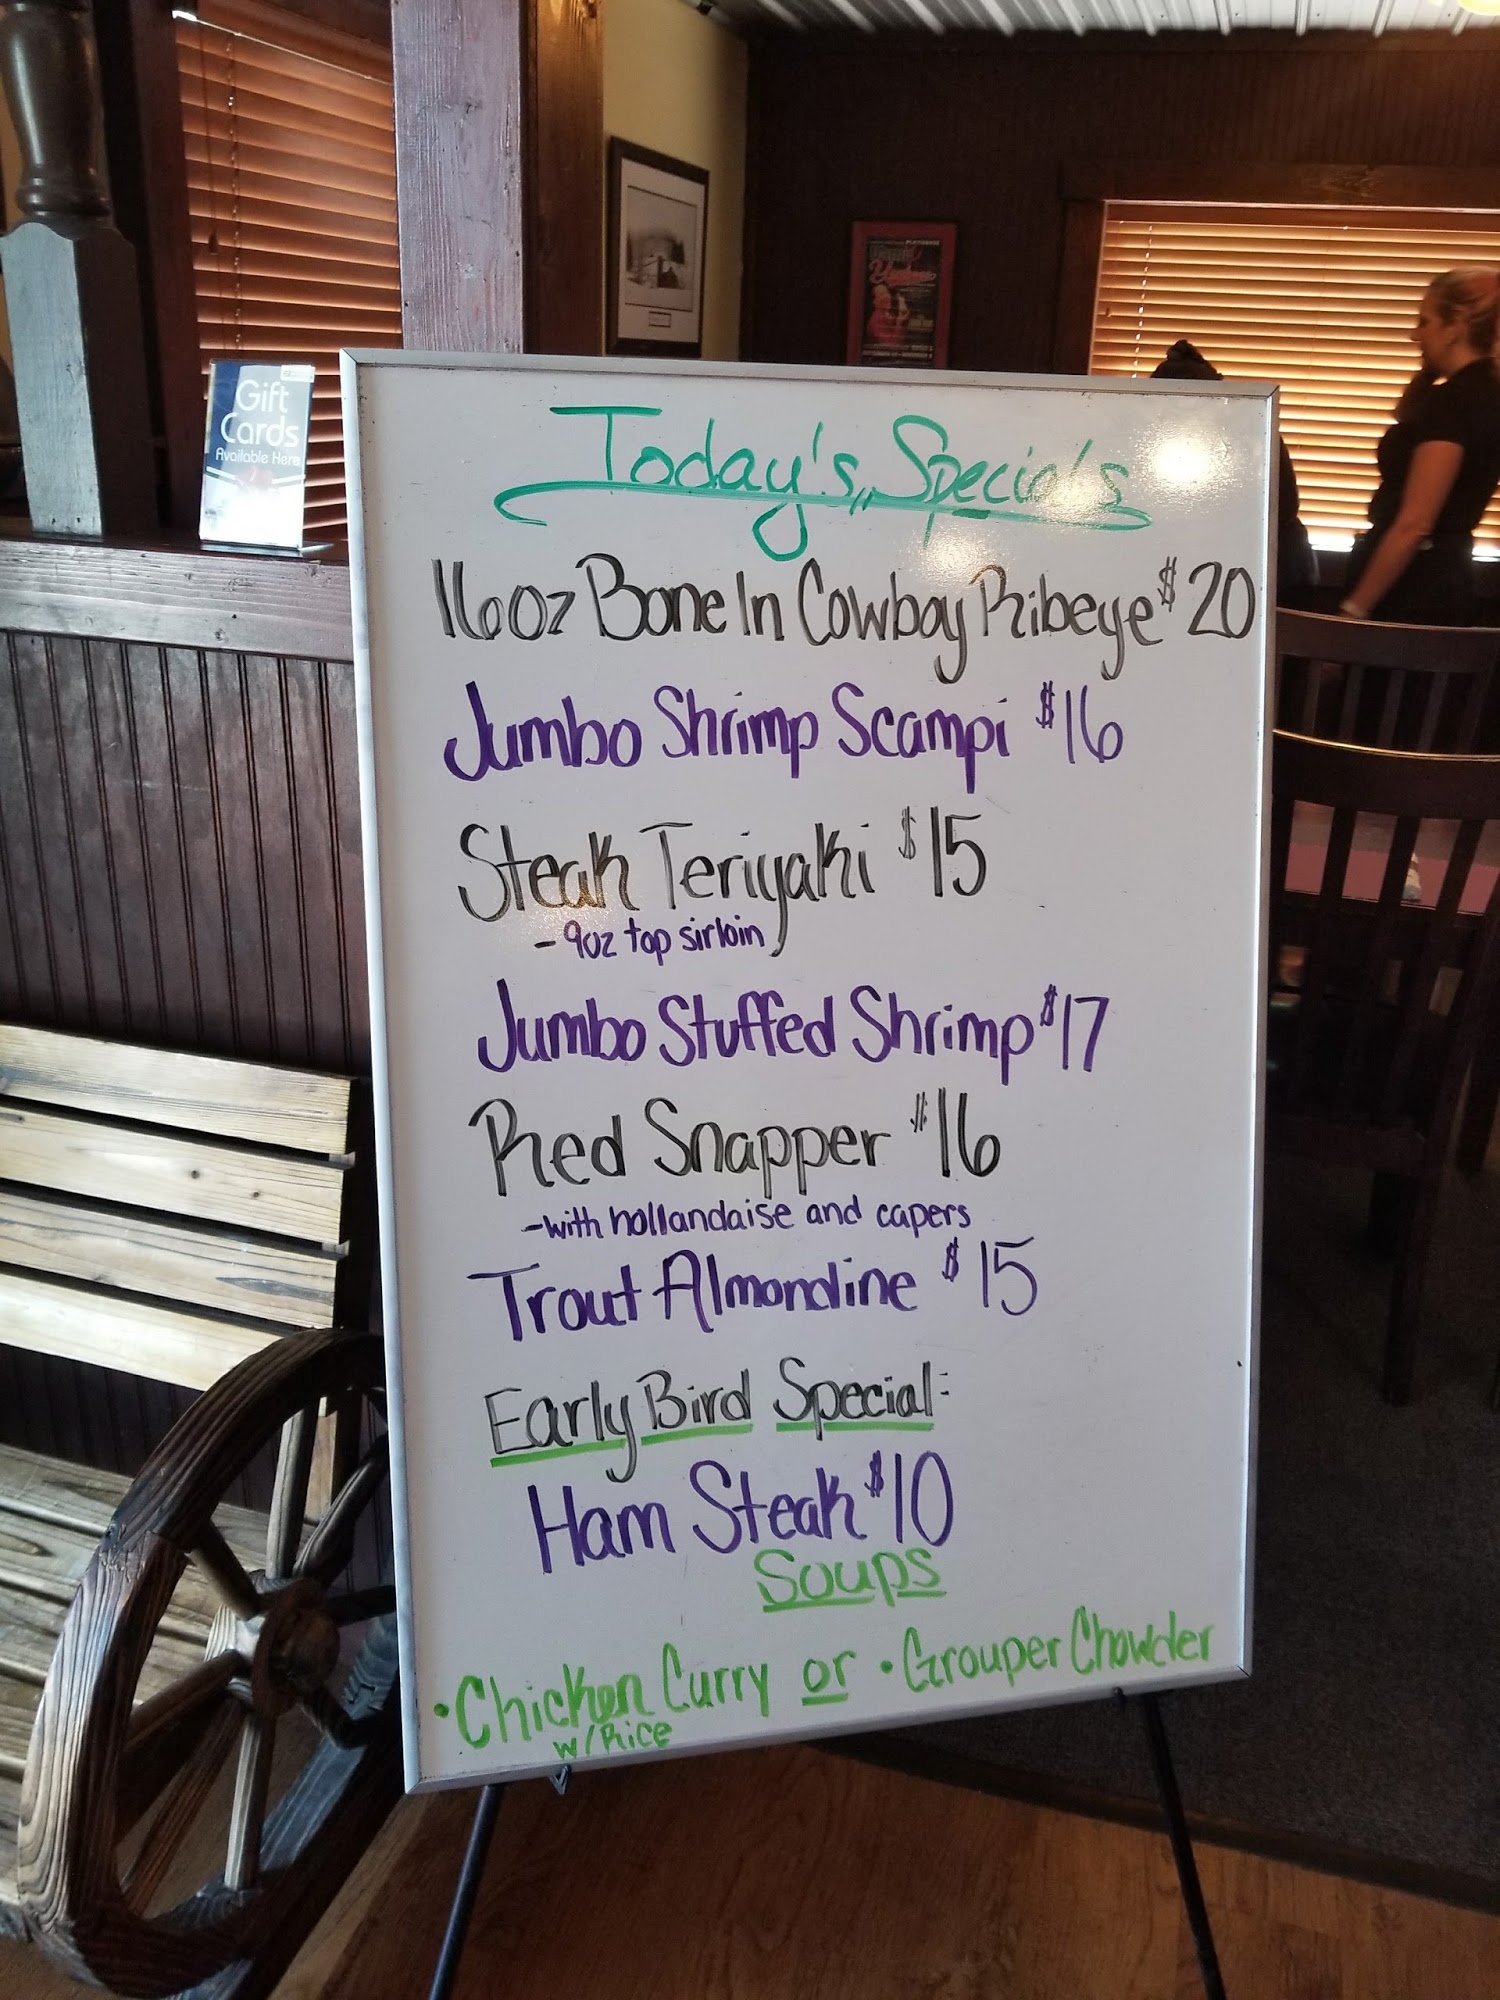 Gift
Cards
Available Here
Today's Specials
16oz Bone In Cowboy Ribeye $20
Jumbo Shrimp Scampi $16
Steak Teriyaki $15
-9oz top sirloin
Jumbo Stuffed Shrimp $17
Red Snapper $16
-with hollandaise and capers
Trout Almondine $15
Early Bird Special:
Ham Steak $10
Soups
•Chicken Curry or •Grouper Chowder
w/Rice